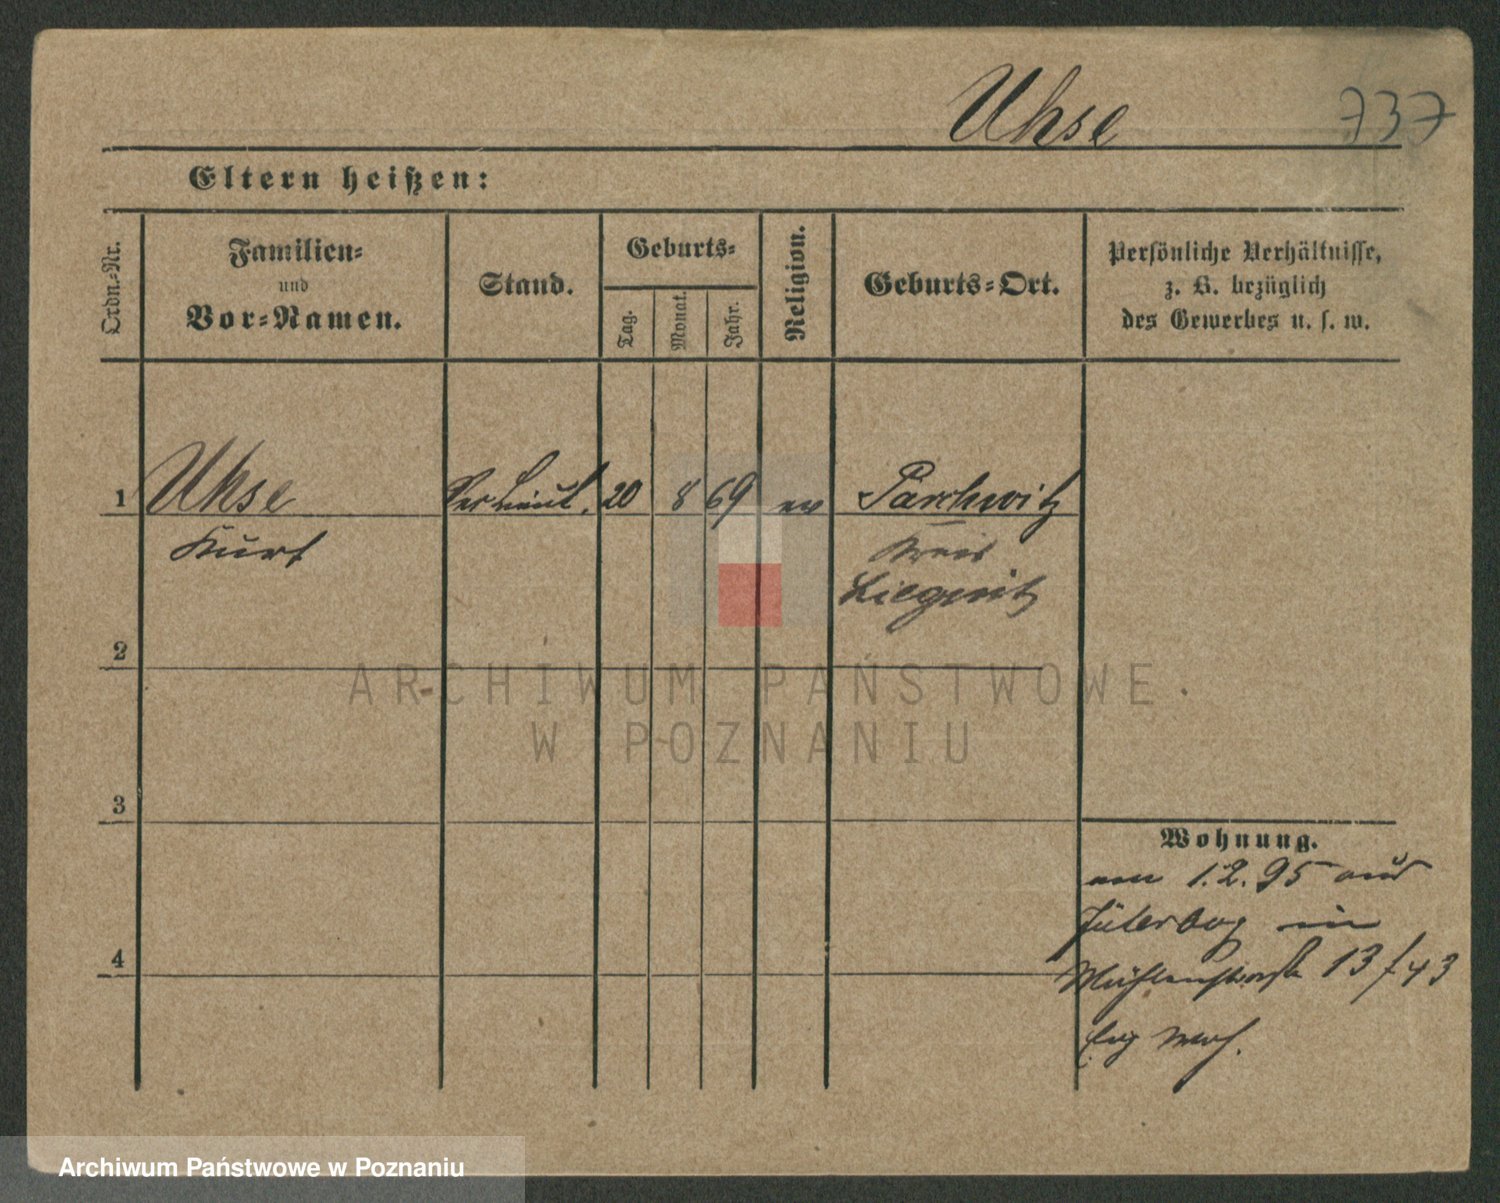 Uhse 737
Eltern heißen:
Ordn.-Nr.
Familien-
und
Vor-Namen.
Stand.
Geburts-
Tag.
Monat.
Jahr.
Religion.
Geburts-Ort.
Persönliche Verhältnisse,
z. B. bezüglich
des Gewerbes u. s. w.
1 Uhse Sec Lieut. 20 8 69 ev Parchwitz
Kurt Kreis
Liegnitz
2
ARCHIWUM PAŃSTWOWE
W POZNANIU
3
Wohnung.
am 1.2.95 aus
Jüterbog in
Mühlenstraße 13/43
4
Archiwum Państwowe w Poznaniu